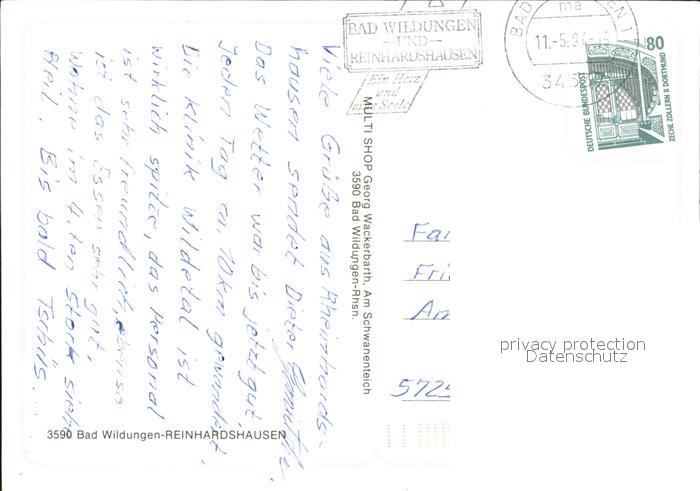 BAD WILDUNGEN
-UND-
REINHARDSHAUSEN
Ein Herz
und
eine Seele
BAD
11.-5.9
80
DEUTSCHE BUNDESPOST
ZECHE ZOLLERN II DORTMUND
Viele Grüße aus Rheinhards-
hausen sendet Dieter
Das Wetter war bis jetzt gut.
Jeden Tag ca. 10km gewandert.
Die Klinik Wildetal ist
wirklich spitze, das Personal
ist sehr freundlich, ebenso
ist das Essen sehr gut,
Wohne im 4.ten Stock siehe
Pfeil. Bis bald Tschüs...
MULTI SHOP Georg Wackerbarth, Am Schwanenteich
3590 Bad Wildungen-Rhsn.
Fa
Fri
An
572
privacy protection
Datenschutz
3590 Bad Wildungen-REINHARDSHAUSEN